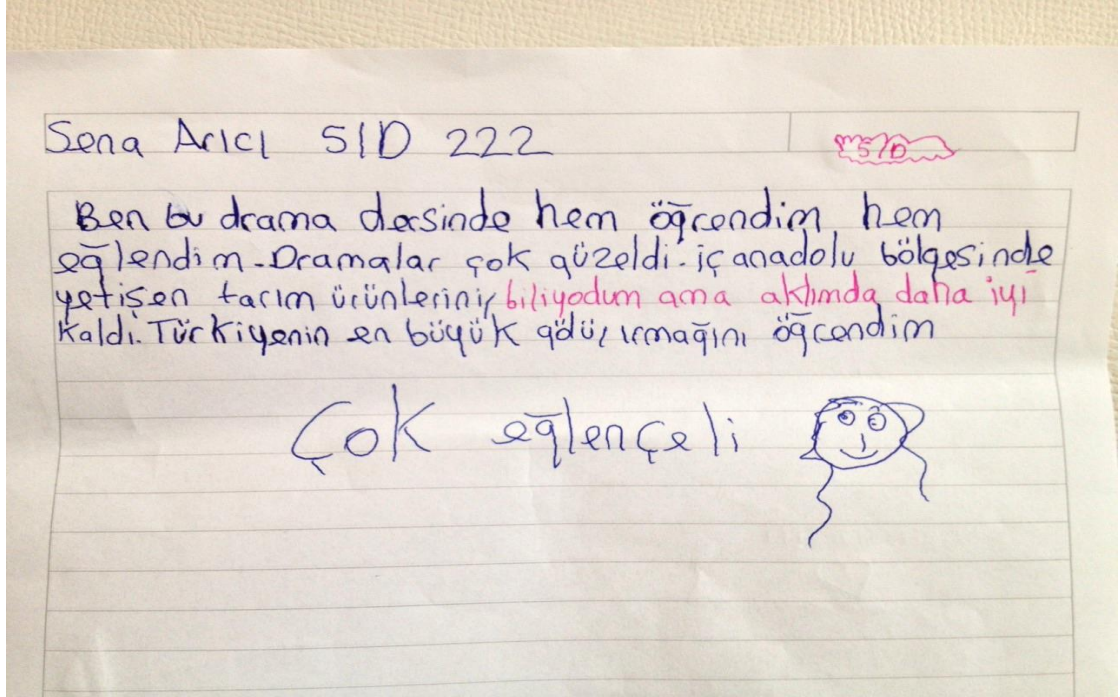 Sena Arıcı 5/D 222
5/D
Ben bu drama dersinde hem öğrendim hem
eğlendim. Dramalar çok güzeldi. iç anadolu bölgesinde
yetişen tarım ürünlerini biliyodum ama aklımda daha iyi
kaldı. Türkiyenin en büyük ırmağını öğrendim
Çok eğlençeli